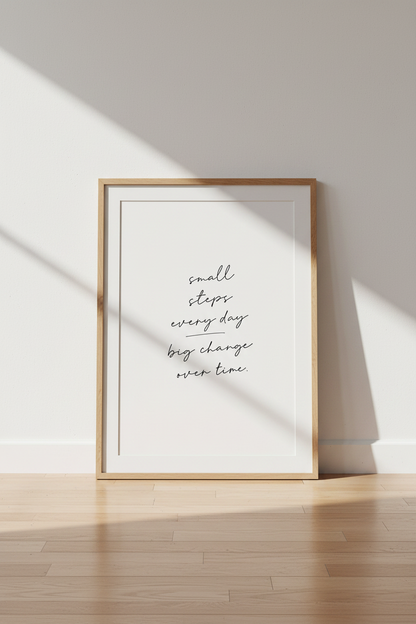 small
steps
every day
big change
over time.